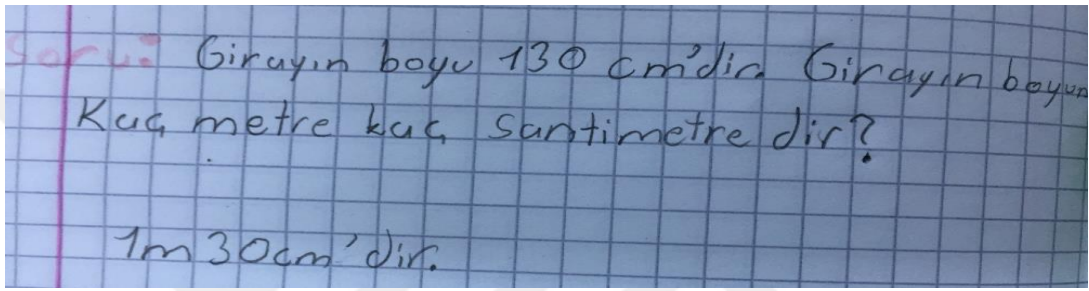 Soru: Girayın boyu 130 cm'dir. Girayın boyun
Kaç metre kaç santimetre dir?
1m 30cm'dir.